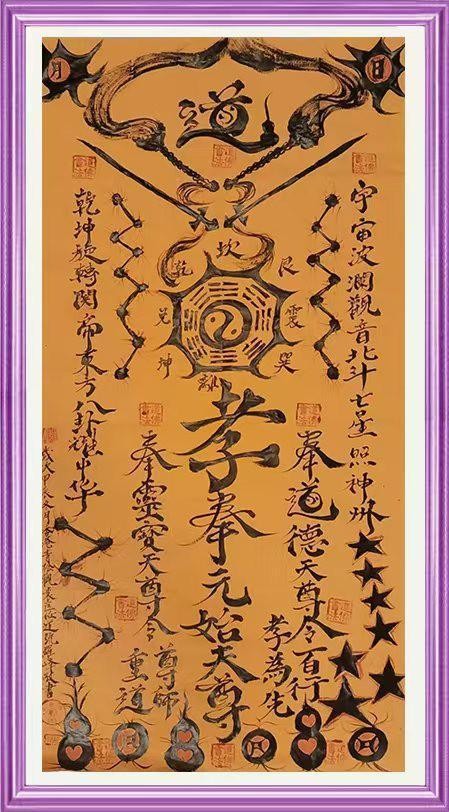 日
月
道
宇宙波瀾觀音北斗七星照神州
乾坤旋轉関帝東方八卦耀中华
乾
坎
艮
兌
震
坤
離
巽
奉道德天尊令百行
孝為先
孝奉元始天尊
奉靈寶天尊令尊師
重道